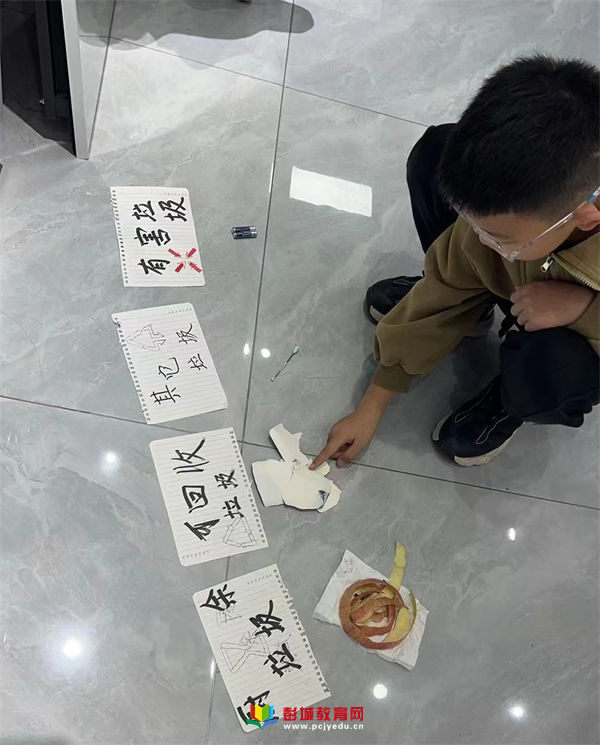 有害垃圾
其它垃圾
可回收
垃圾
厨余
垃圾
彭城教育网
www.pcjyedu.cn